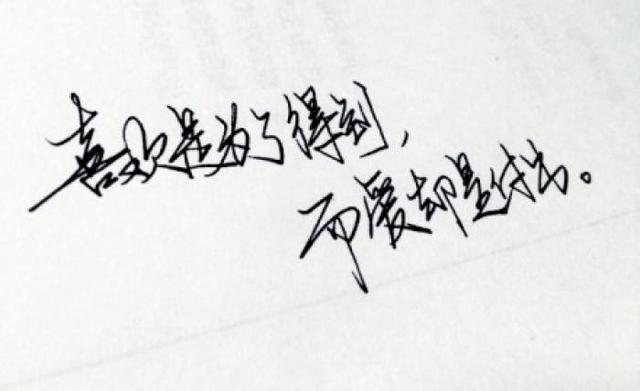 喜欢是为了得到,
而爱却是付出。